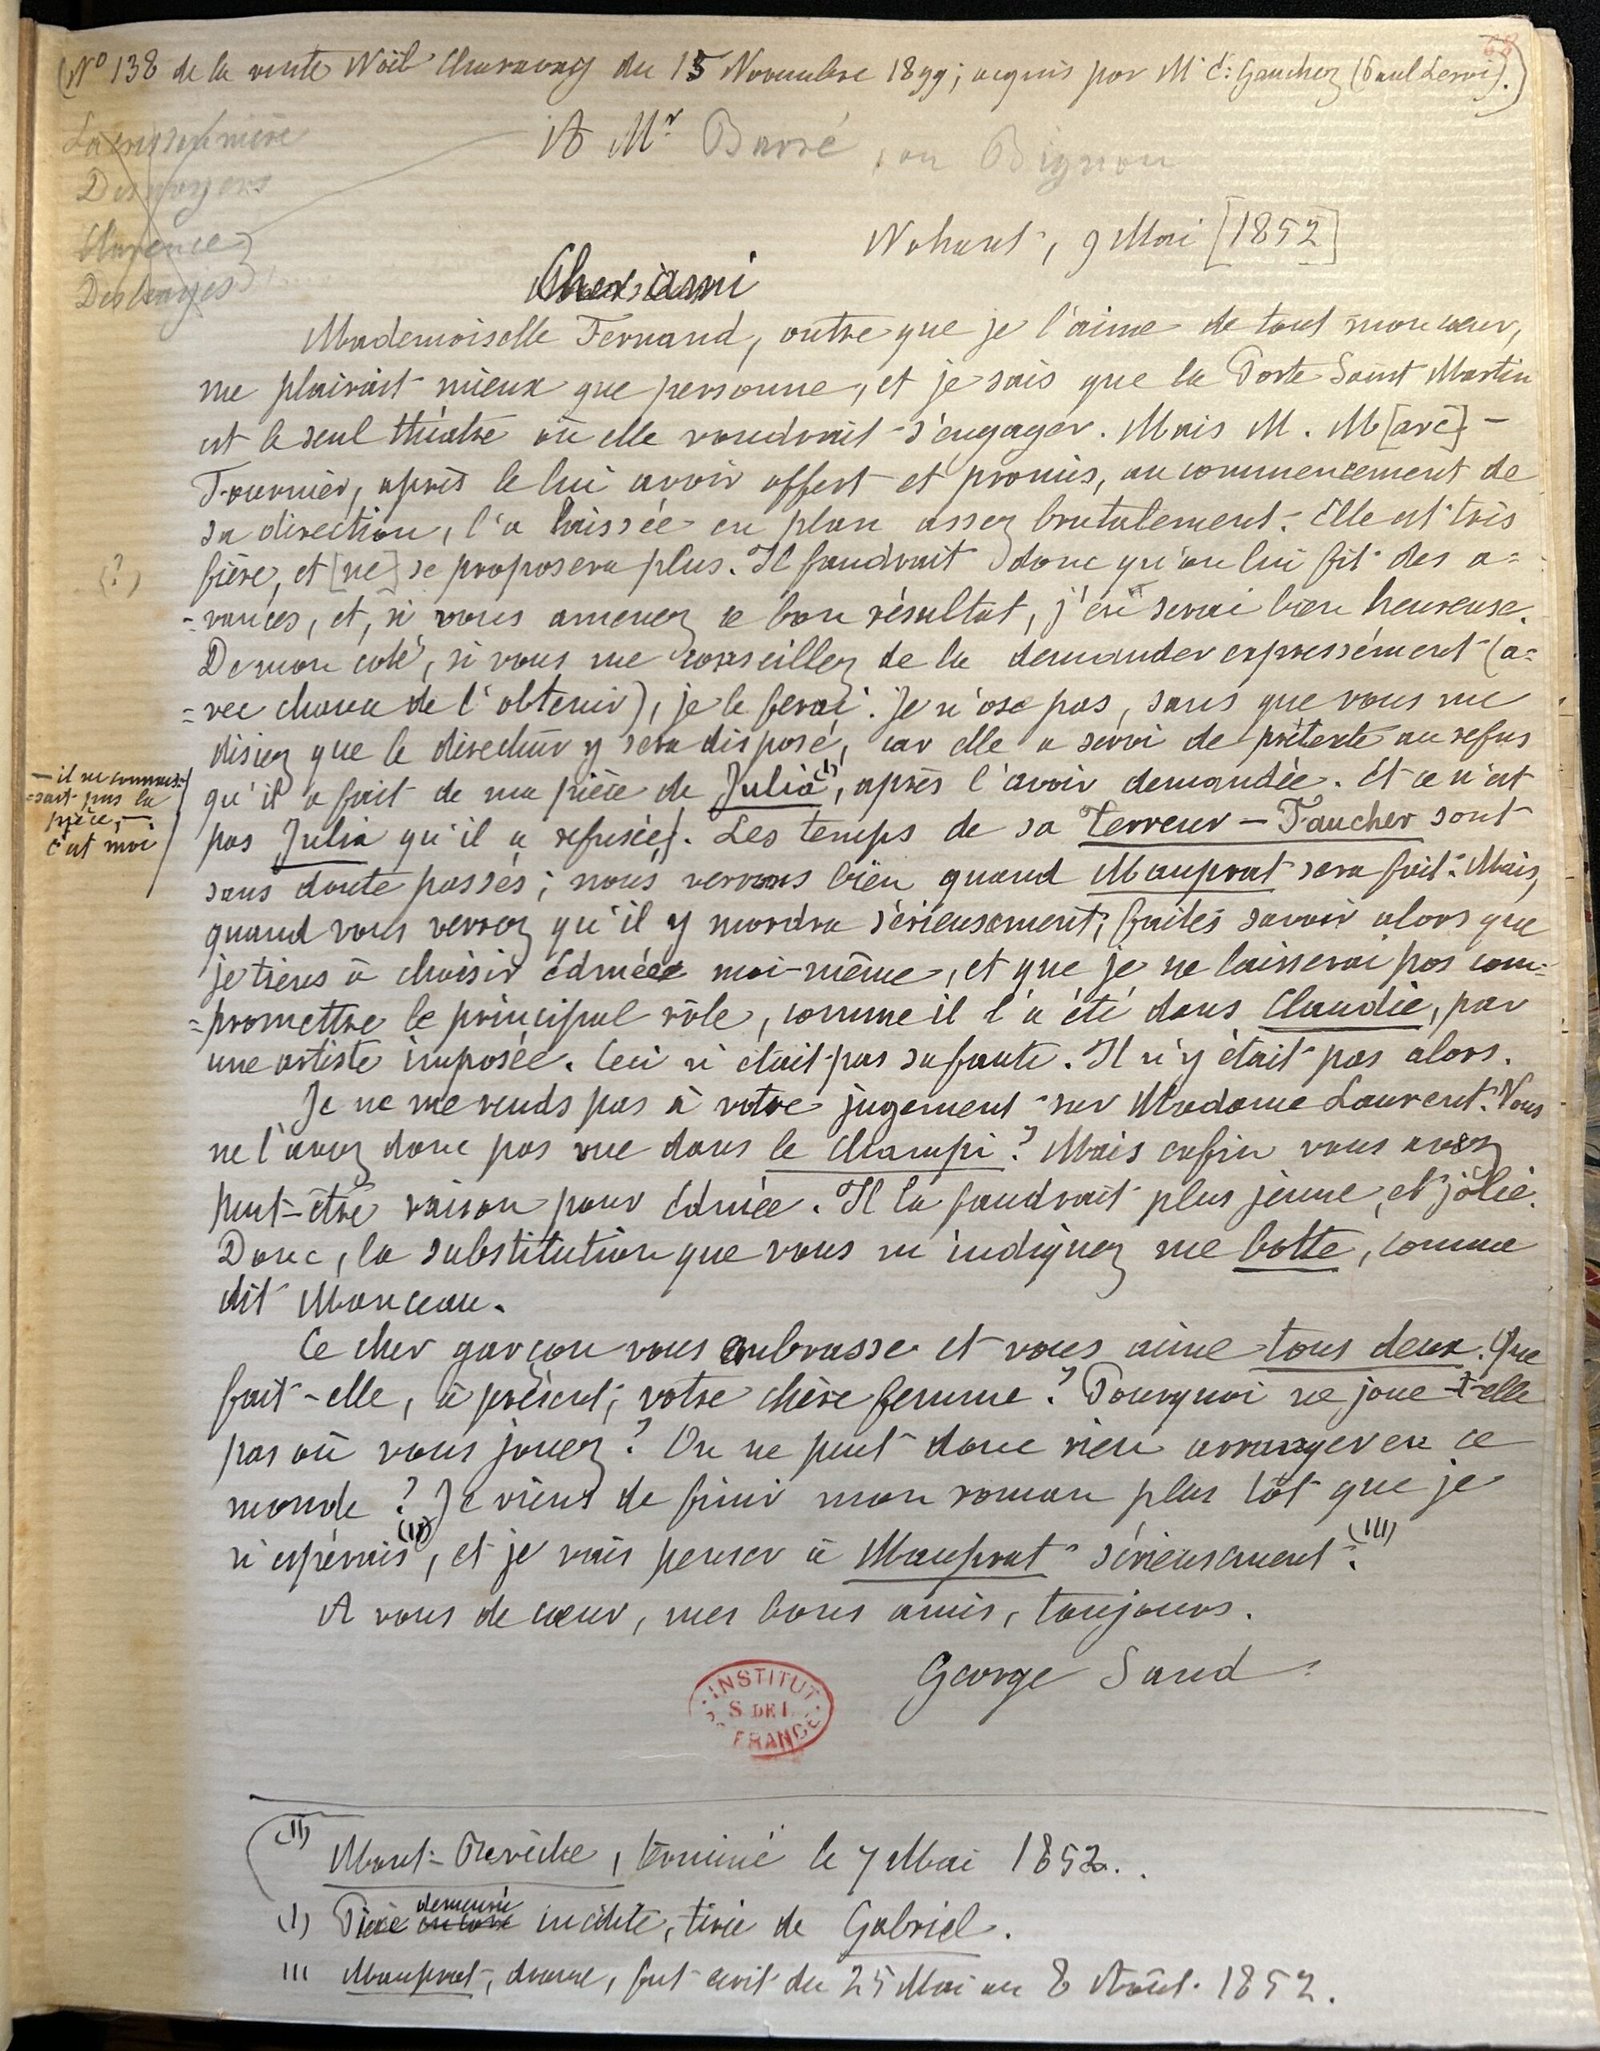 68
(No 138 de la vente Noël Charavay du 15 Novembre 1899; acquis par M. E. Gauchez (Paul Leroi).)
A Mr Barré, ou Bignon
Desnoyers
Clarence
Nohant, 9 Mai [1852]
Cher ami
Mademoiselle Fernand, outre que je l'aime de tout mon cœur,
me plairait mieux que personne, et je sais que la Porte Saint Martin
est le seul théâtre où elle voudrait s'engager. Mais M. M[arc] -
Fournier, après le lui avoir offert et promis, au commencement de
sa direction, l'a laissée en plan assez brutalement. Elle est très
(?)
fière, et [ne] se proposera plus. Il faudrait donc qu'on lui fit des a=
=vances, et, si vous amenez ce bon résultat, j'en serai bien heureuse.
De mon coté, si vous me conseillez de la demander expressément (a=
=vec chance de l'obtenir), je le ferai. Je n'ose pas, sans que vous me
disiez que le directeur y sera disposé, car elle a servi de prétexte au refus
qu'il a fait de ma pièce de Julia(I), après l'avoir demandée. Et ce n'est
— il ne connais=
=sait pas la
pièce, —
c'est moi
pas Julia qu'il a refusée). Les temps de sa Terreur – Faucher sont
sans doute passés; nous verrons bien quand Mauprat sera fait. Mais,
quand vous verrez qu'il y mordra sérieusement, faites savoir alors que
je tiens à choisir Edmée moi-même, et que je ne laisserai pas com=
=promettre le principal rôle, comme il l'a été dans Claudie, par
une artiste imposée. Ceci n'était pas sa faute. Il n'y était pas alors.
Je ne me rends pas à votre jugement sur Madame Laurent. Vous
ne l'avez donc pas vue dans le Champi? Mais enfin vous avez
peut-être raison pour Edmée. Il la faudrait plus jeune, et jolie.
Donc, la substitution que vous m'indiquez me botte, comme
dit Manceau.
Ce cher garçon vous embrasse et vous aime tous deux. Que
fait-elle, à présent, votre chère femme? Pourquoi ne joue-t-elle
pas où vous jouez? On ne peut donc rien arranger en ce
monde? Je viens de finir mon roman plus tôt que je
n'espérais(II), et je vais penser à Mauprat sérieusement.(III)
A vous de cœur, mes bons amis, toujours.
George Sand
INSTITUT
DE
FRANCE
(II) Mont-Revêche, terminé le 7 Mai 1852.
(I) Pièce encore demeurée inédite, tirée de Gabriel.
III Mauprat, drame, fut écrit du 25 Mai au 8 Août 1852.